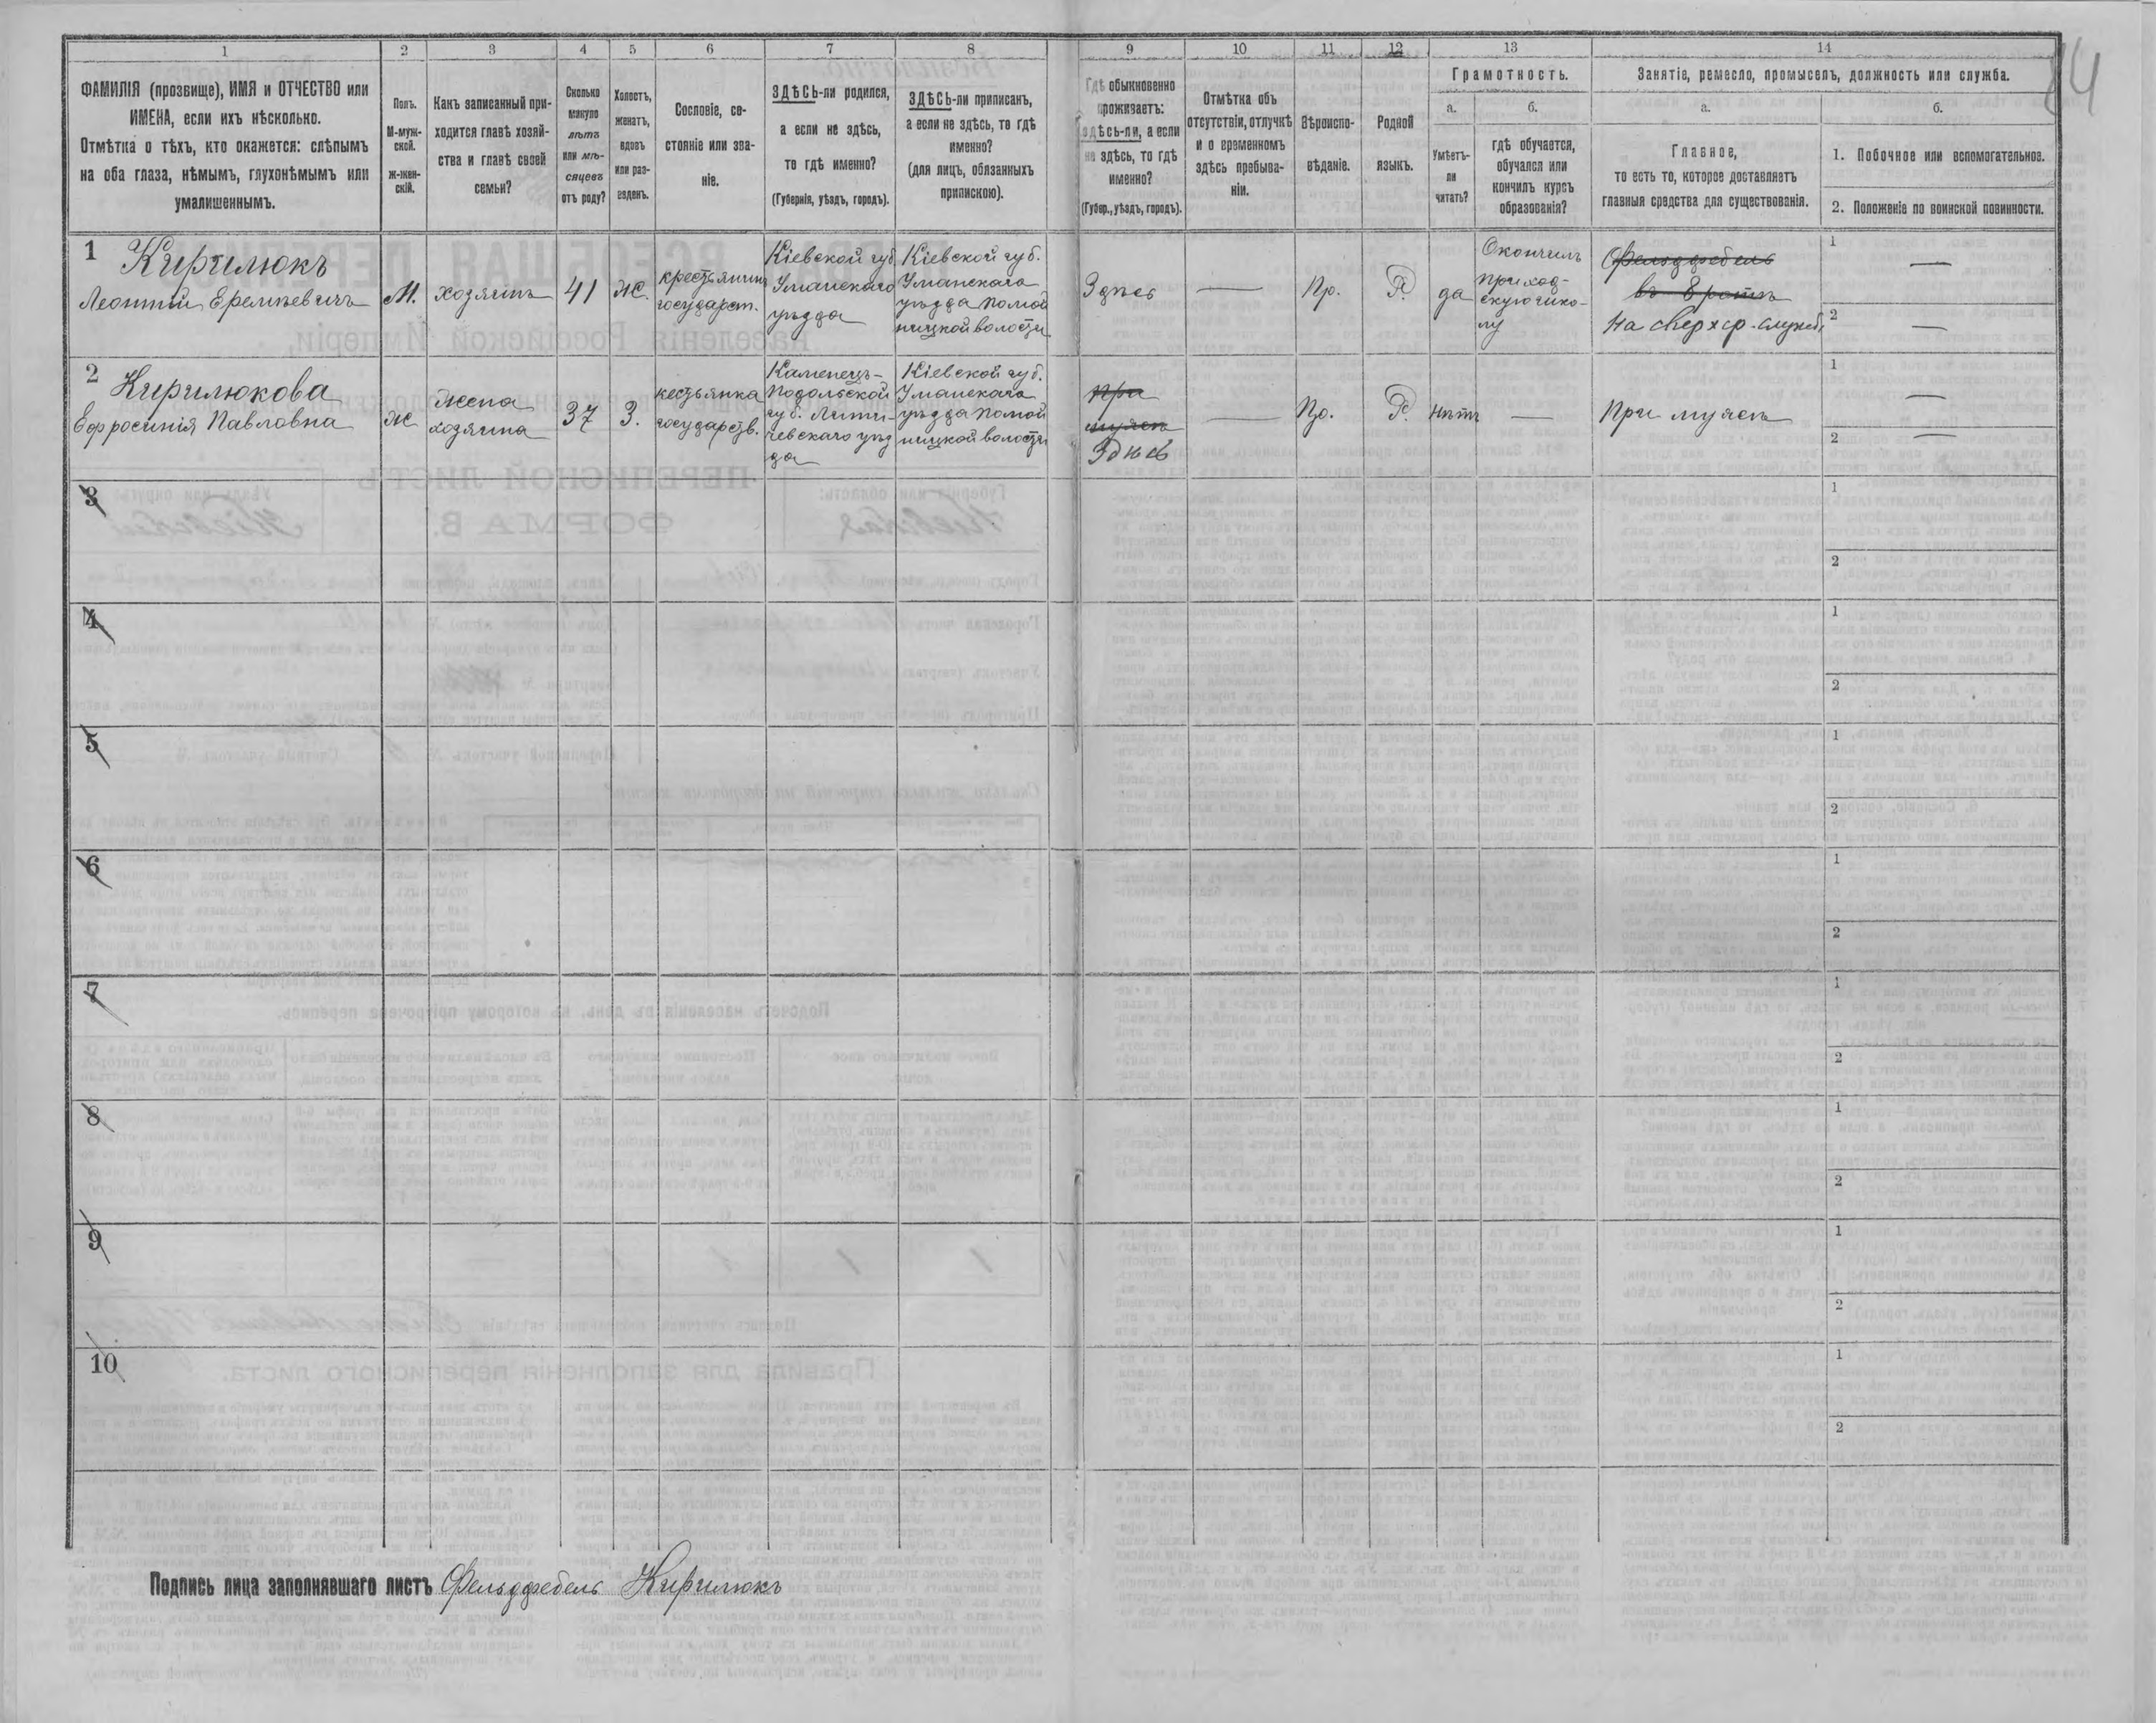 14
1 2 3 4 5 6 7 8 9 10 11 12 13 14
ФАМИЛІЯ (прозвище), ИМЯ и ОТЧЕСТВО или
ИМЕНА, если ихъ нѣсколько.
Отмѣтка о тѣхъ, кто окажется: слѣпымъ
на оба глаза, нѣмымъ, глухонѣмымъ или
умалишеннымъ.
Полъ.
М-муж-
ской.
ж-жен-
скій.
Какъ записанный при-
ходится главѣ хозяй-
ства и главѣ своей
семьи?
Сколько
минуло
лѣтъ
или мѣ-
сяцевъ
отъ роду?
Холостъ,
женатъ,
вдовъ
или раз-
веденъ.
Сословіе, со-
стояніе или зва-
ніе.
ЗДѢСЬ-ли родился,
а если не здѣсь,
то гдѣ именно?
(Губернія, уѣздъ, городъ).
ЗДѢСЬ-ли приписанъ,
а если не здѣсь, то гдѣ
именно?
(для лицъ, обязанныхъ
припискою).
Гдѣ обыкновенно
проживаетъ:
здѣсь-ли, а если
не здѣсь, то гдѣ
именно?
(Губер., уѣздъ, городъ).
Отмѣтка объ
отсутствіи, отлучкѣ
и о временномъ
здѣсь пребыва-
ніи.
Вѣроиспо-
вѣданіе.
Родной
языкъ.
Грамотность.
а.
Умѣетъ-
ли
читать?
б.
гдѣ обучается,
обучался или
кончилъ курсъ
образованія?
Занятіе, ремесло, промыселъ, должность или служба.
а.
Главное,
то есть то, которое доставляетъ
главныя средства для существованія.
б.
1. Побочное или вспомогательное.
2. Положеніе по воинской повинности.
1
Кирилюкъ
Леонтій Еремѣевичъ
М.
хозяинъ
41
Ж.
крестьянинъ
государст.
Кіевской губ
Уманскаго
уѣзда
Кіевской губ.
Уманскаго
уѣзда помой
ницкой волости
Здѣсь
—
Пр.
Р.
да
Окончилъ
приход-
скую шко-
лу
Фельдфебель
въ 8 ротѣ
На сверхср. службѣ
1 —
2 —
2
Кирилюкова
Ефросинія Павловна
Ж
жена
хозяина
37
З.
кестьянка
государств.
Каменецъ-
Подольской
губ. Лити-
чевскаго уѣз
да
Кіевской губ.
Уманскаго
уѣзда помой
ницкой волости
при
мужѣ
Здѣсь
—
Пр.
Р.
нѣтъ
—
При мужѣ
1 —
2 —
3
1
2
4
1
2
5
1
2
6
1
2
7
1
2
8
1
2
9
1
2
10
1
2
Подпись лица заполнявшаго листъ Фельдфебель Кирилюкъ